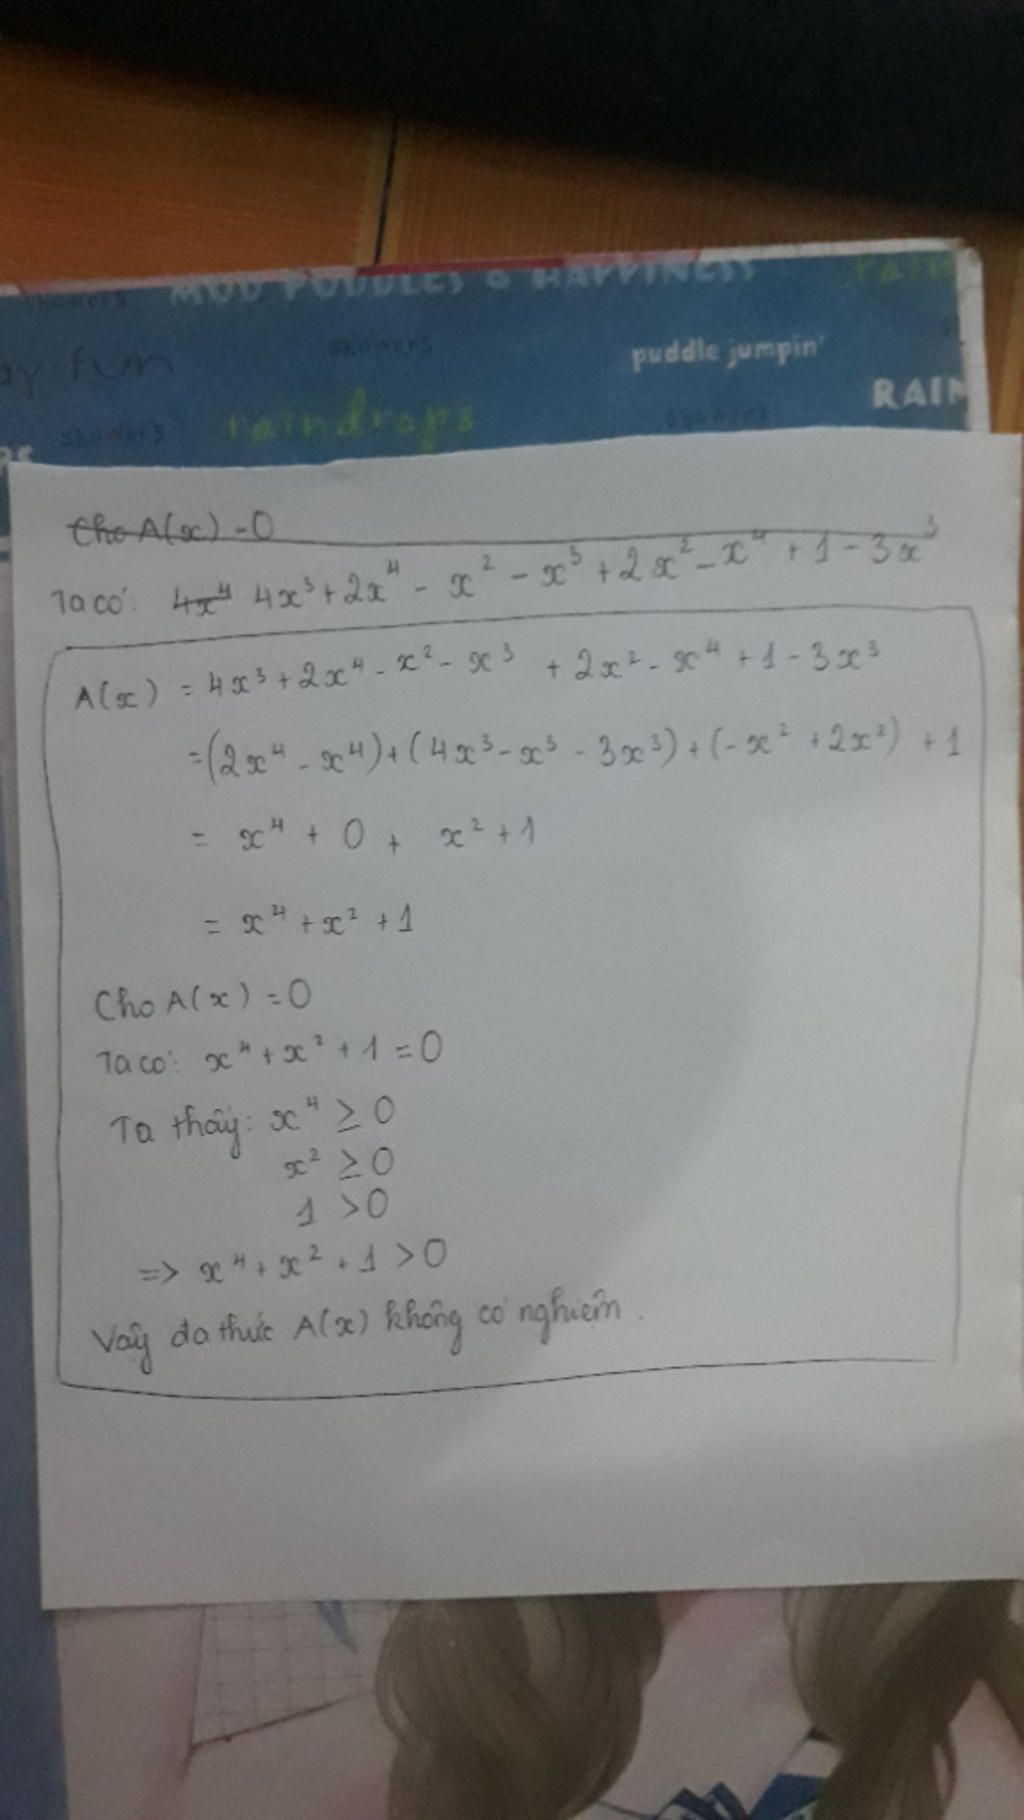 showers MUD PUDDLES & HAPPINESS rain
ay fun showers puddle jumpin'
RAIN
showers raindrops showers
Cho A(x) = 0
Ta có: 4x⁴ 4x³ + 2x⁴ - x² - x³ + 2x² - x⁴ + 1 - 3x³
A(x) = 4x³ + 2x⁴ - x² - x³ + 2x² - x⁴ + 1 - 3x³
= (2x⁴ - x⁴) + (4x³ - x³ - 3x³) + (-x² + 2x²) + 1
= x⁴ + 0 + x² + 1
= x⁴ + x² + 1
Cho A(x) = 0
Ta có: x⁴ + x² + 1 = 0
Ta thấy: x⁴ ≥ 0
x² ≥ 0
1 > 0
=> x⁴ + x² + 1 > 0
Vậy đa thức A(x) không có nghiệm.